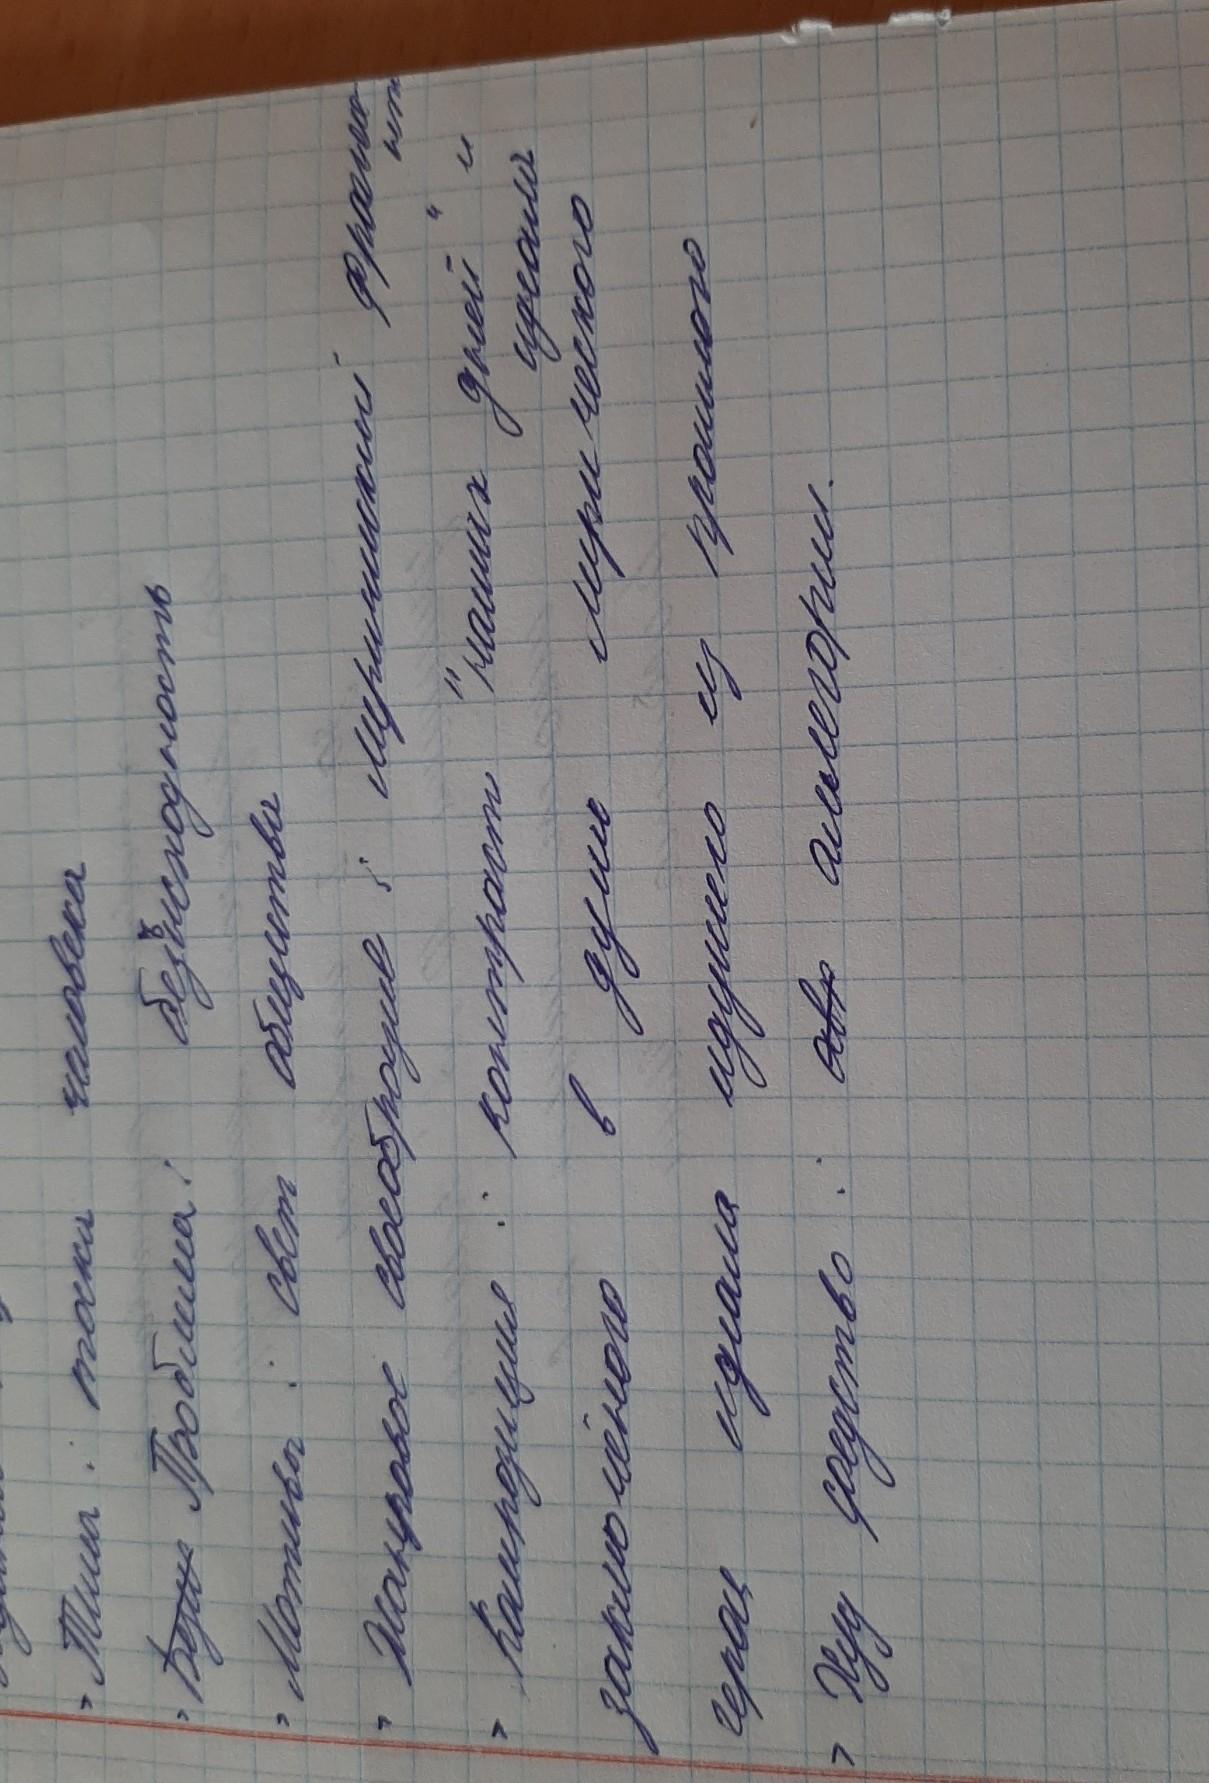 > Тема: тоска человека
> Проблема: безысходность
> Мотивы: свет общества
> Жанровое своеобразие: лирический фрагмент
> Композиция: контраст "наших дней" и идеала
заключённого в думе лирического
героя идеала идущего из прошлого
> Худ средство: аллегории.